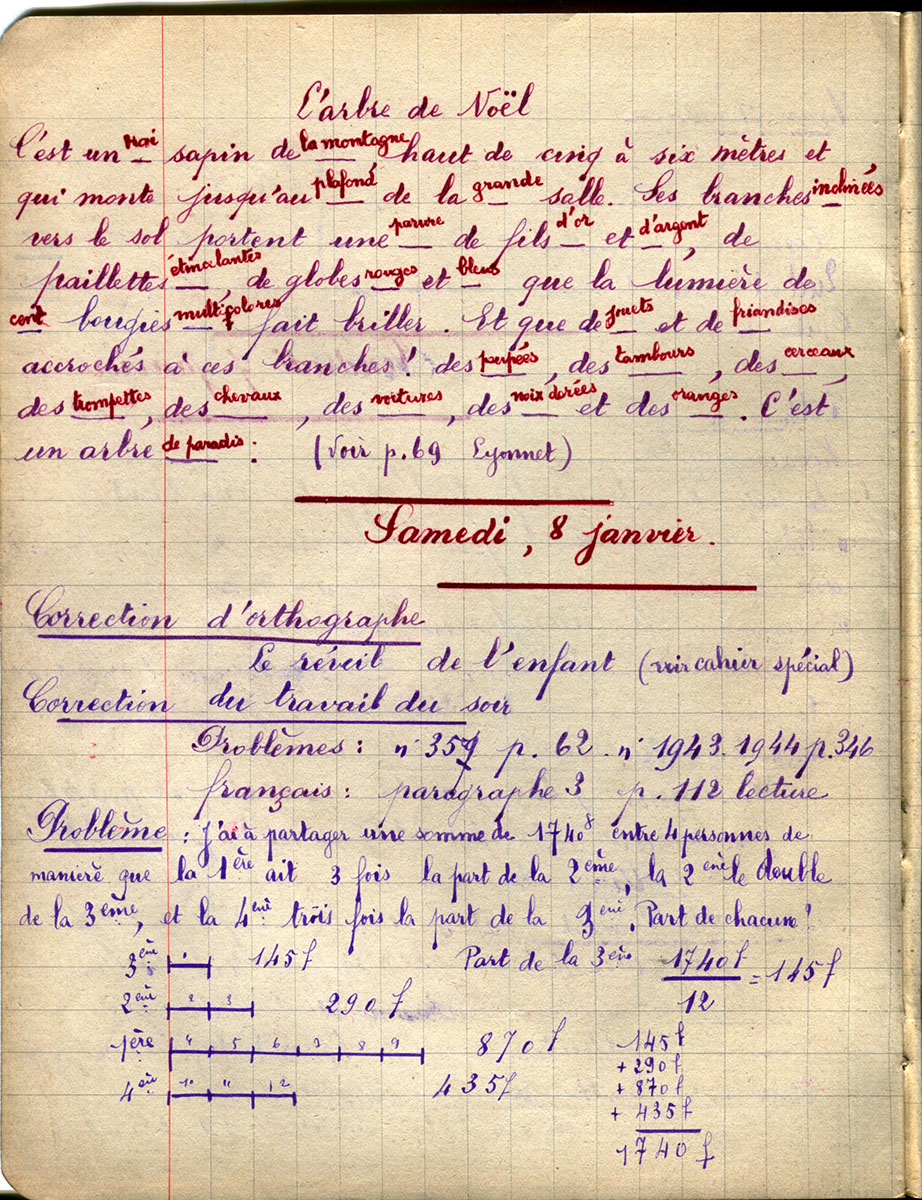 L'arbre de Noël
C'est un vrai sapin de la montagne haut de cinq à six mètres et
qui monte jusqu'au plafond de la grande salle. Ses branches inclinées
vers le sol portent une parure de fils d'or et d'argent, de
paillettes étincelantes, de globes rouges et bleus que la lumière de
cent bougies multicolores fait briller. Et que de jouets et de friandises
accrochés à ces branches! des poupées, des tambours, des cerceaux,
des trompettes, des chevaux, des voitures, des noix dorées et des oranges. C'est
un arbre de paradis. (Voir p.69 Lyonnet)
Samedi, 8 janvier.
Correction d'orthographe
Le réveil de l'enfant (voir cahier spécial)
Correction du travail du soir
Problèmes: n° 357 p. 62. n° 1943. 1944 p.346
français: paragraphe 3 p. 112 lecture
Problème: J'ai à partager une somme de 1740f entre 4 personnes de
manière que la 1ère ait 3 fois la part de la 2ème, la 2ème le double
de la 3ème, et la 4ème trois fois la part de la 3ème. Part de chacune!
3ème 1 145f Part de la 3ème 1740f/12 = 145f
2ème 2 3 290f
1ère 4 5 6 7 8 9 870f 145f
+ 290f
+ 870f
4ème 10 11 12 435f + 435f
1740f